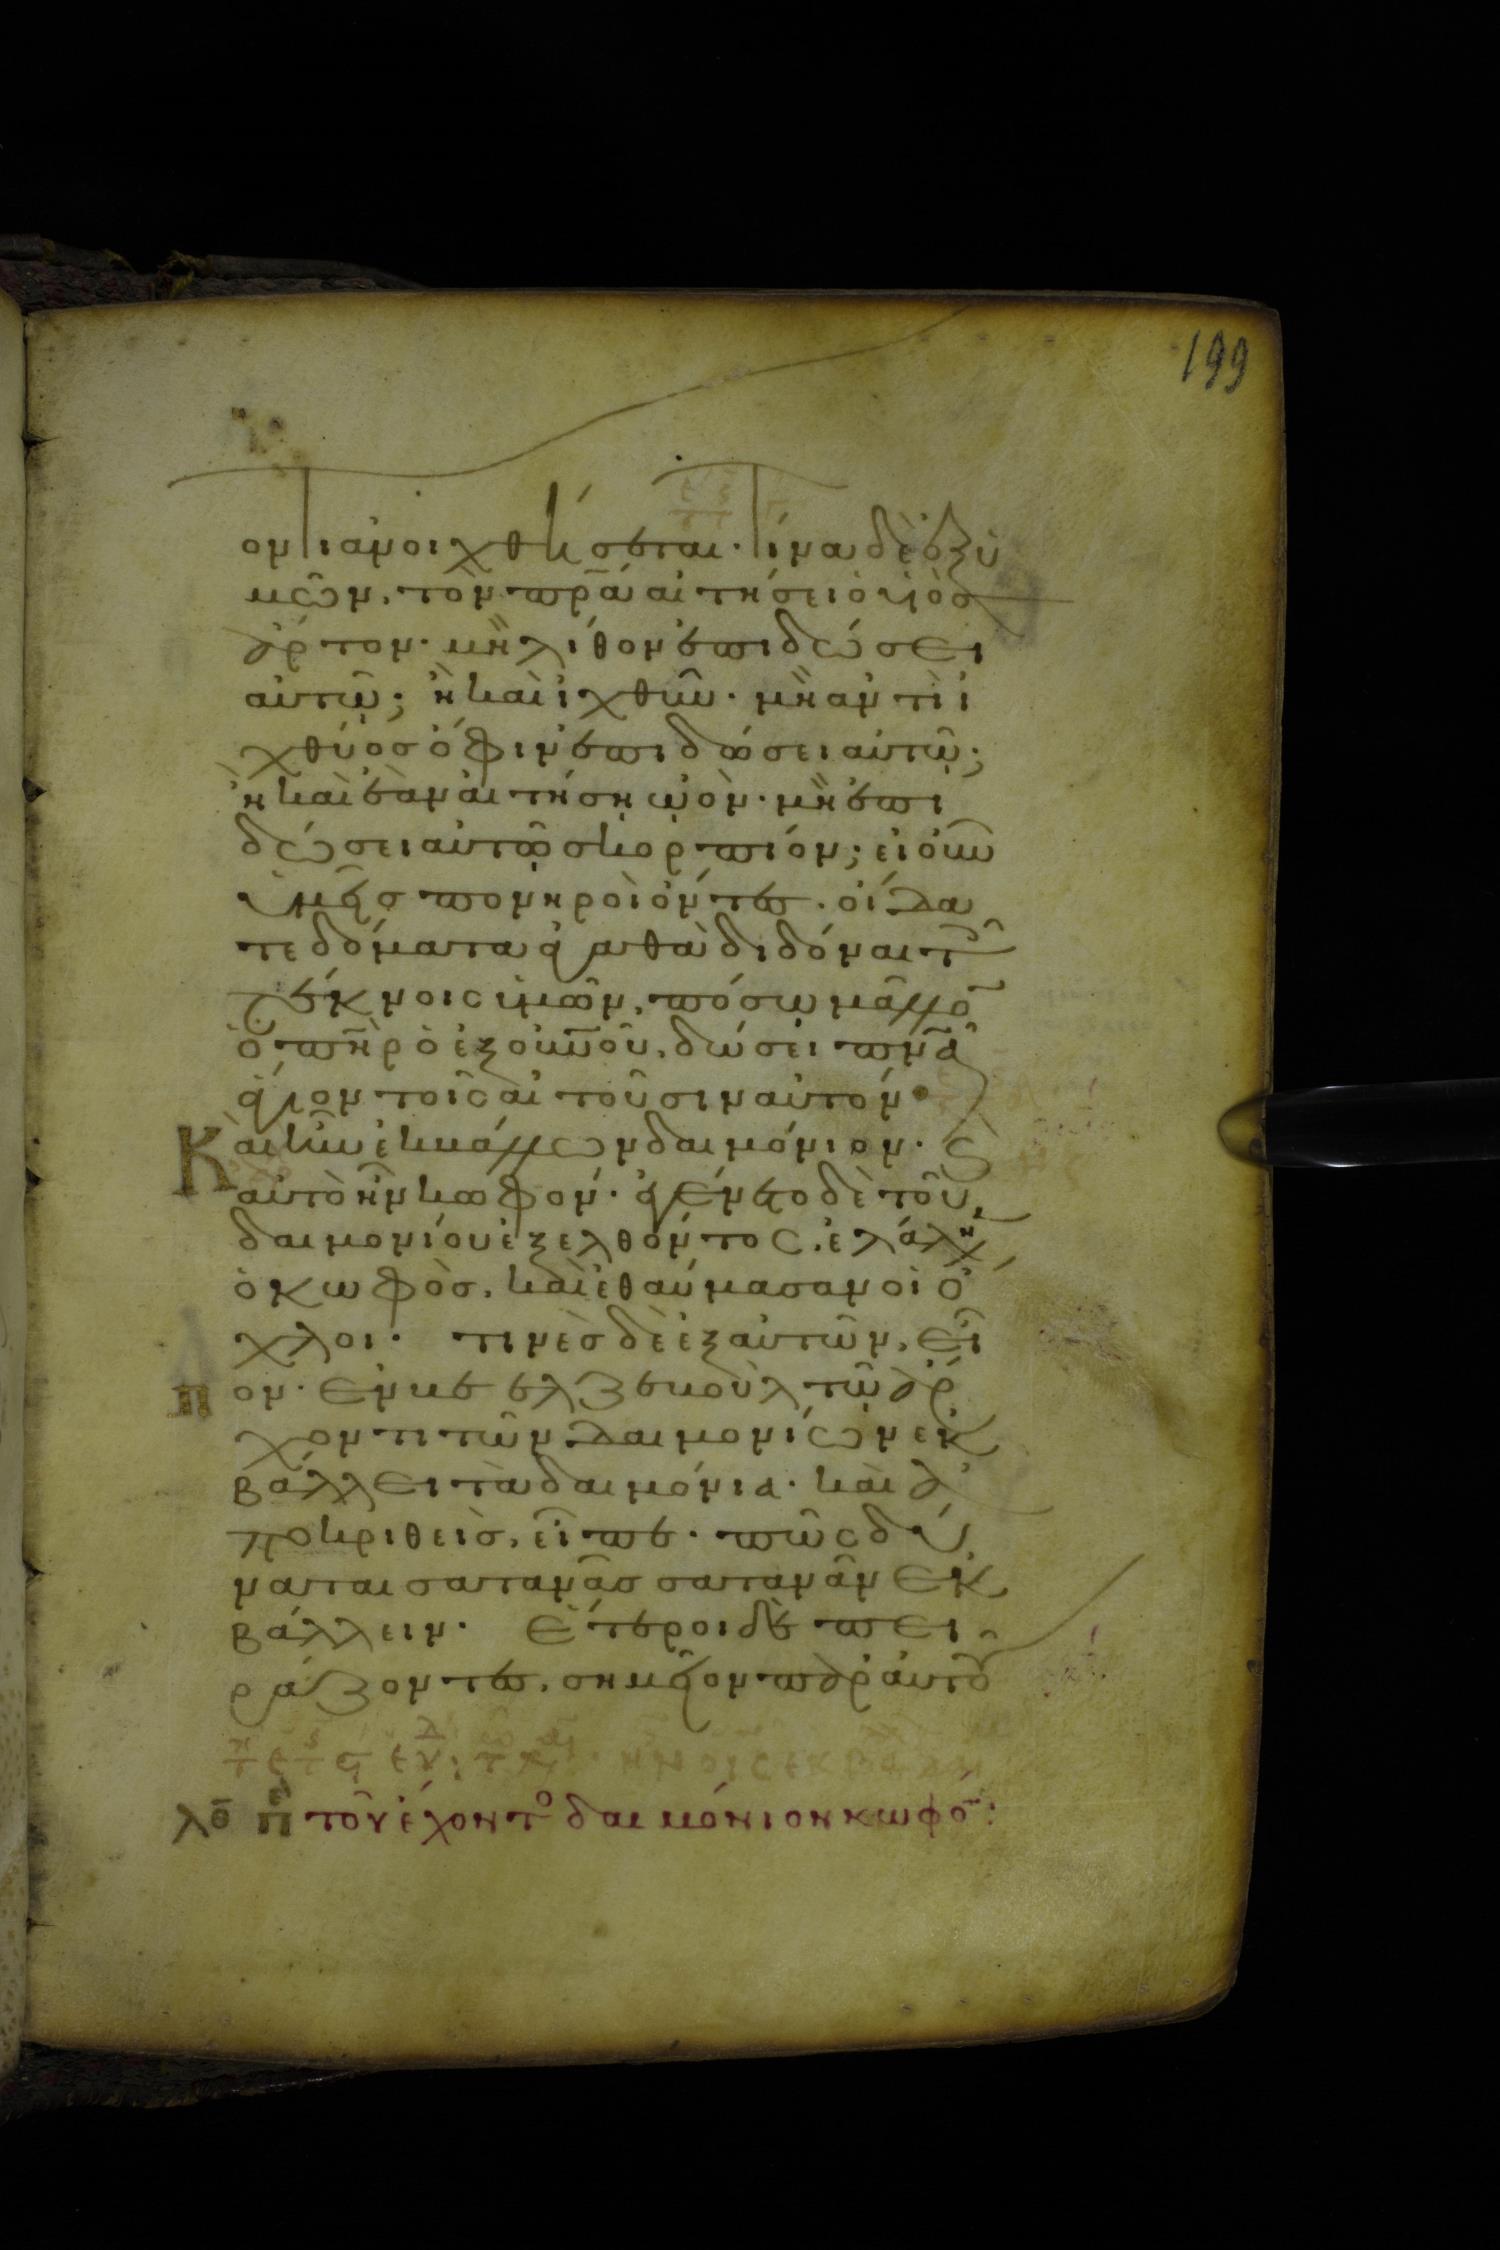 199
οντι ἀνοιχθήσεται· τίνα δὲ ἐξ ὑ
μῶν, τὸν πρ̅α αἰτήσει ὁ υἱὸς
ἄρτον· μὴ λίθον ἐπιδώσει
αὐτῷ; ἢ καὶ ἰχθῦν· μὴ ἀντὶ ἰ
χθύος ὄφιν ἐπιδώσει αὐτῷ;
ἢ καὶ ἐὰν αἰτήσῃ ᾠὸν· μὴ ἐπι
δώσει αὐτῷ σκορπίον; εἰ οὖν
ὑμεῖς πονηροὶ ὄντες· οἴδα
τε δόματα ἀγαθὰ διδόναι τοῖς
τέκνοις ὑμῶν, πόσω μᾶλλον
ὁ π̅η̅ρ ὁ ἐξ οὐ̅ν̅οῦ, δώσει π̅ν̅α
ἅγιον τοῖς αἰτοῦσιν αὐτόν·
Καὶ ἦν ἐκβάλλων δαιμόνιον· καὶ
αὐτὸ ἦν κωφόν· ἐγένετο δὲ τοῦ
δαιμονίου ἐξελθόντος, ἐλάλη
ὁ κωφὸς, καὶ ἐθαύμασαν οἱ ὄ
χλοι· τινὲς δὲ ἐξ αὐτῶν, εἶ
πον· ἐν βεελζεβοὺλ τῷ ἄρ
χοντι τῶν δαιμονίων ἐκ
βάλλει τὰ δαιμόνια· καὶ ἀ
ποκριθεὶς, εἶπε· πῶς δύ
ναται σατανᾶς σατανᾶν ἐκ
βάλλειν· ἕτεροι δὲ πει
ράζοντες, σημεῖον παρ' αὐτοῦ
λ̅ο̅ πε τοῦ ἔχοντο δαιμόνιον κωφόν: